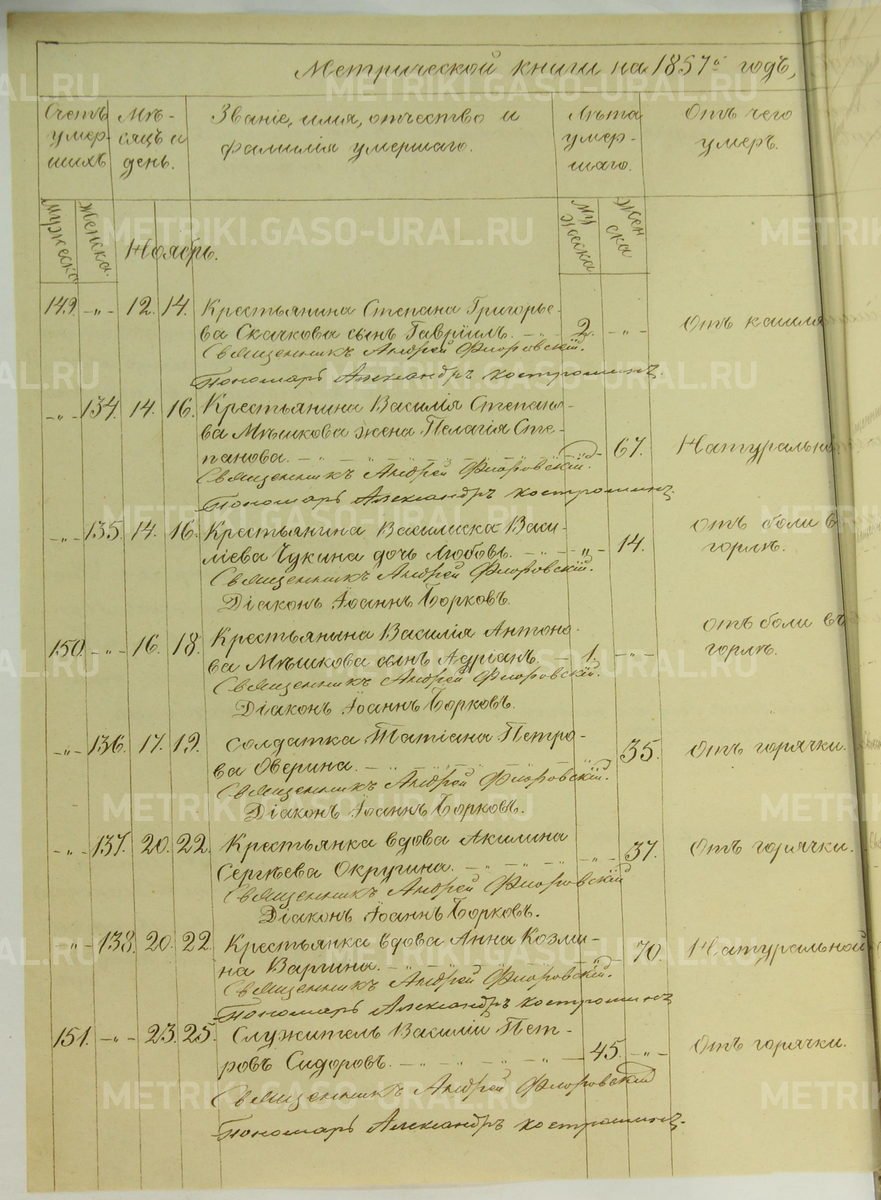 Метрической книги на 1857й годъ,
Счетъ умер- шихъ
Мѣ- сяцъ и день.
Званіе, имя, отчество и фамилія умершаго.
Лѣта умер- шаго.
Отъ чего умеръ.
Мужеска
Женска.
Ноябрь.
Му жеска
Жен ска
149. -„- 12. 14. Крестьянина Степана Григорье-
ва Скачкова сынъ Гавріилъ. -„- 2. -„- Отъ кашля
Священникъ Андрей Флоровскій.
Пономарь Александръ Костроминъ.
-„- 134. 14. 16. Крестьянина Василія Степано-
ва Мѣшкова жена Пелагія Сте-
панова. -„- 67. Натурально
Священникъ Андрей Флоровскій.
Пономарь Александръ Костроминъ.
-„- 135. 14. 16. Крестьянина Василиска Васи-
лiева Чукина дочь Любовь. -„- 14. отъ боли въ горлѣ.
Священникъ Андрей Флоровскій.
Діаконъ Іоаннъ Борковъ.
150. -„- 16. 18. Крестьянина Василія Антоно-
ва Мѣшкова сынъ Адріанъ. - 1. -„- отъ боли въ горлѣ.
Священникъ Андрей Флоровскій.
Діаконъ Іоаннъ Борковъ.
-„- 136. 17. 19. Солдатка Татіана Петро-
ва Оверина. -„- 35. Отъ горячки.
Священникъ Андрей Флоровскій.
Діаконъ Іоаннъ Борковъ.
-„- 137. 20. 22. Крестьянка вдова Акилина
Сергѣева Округина. -„- 37. Отъ горячки.
Священникъ Андрей Флоровскій
Діаконъ Іоаннъ Борковъ.
„- 138. 20. 22. Крестьянка вдова Анна Козми-
на Варгина. -„- 70. Натуральной
Священникъ Андрей Флоровскій.
Пономарь Александръ Костроминъ
151. -„- 23. 25. Служитель Василій Пет-
ровъ Сидоровъ. -„- 45. -„- Отъ горячки.
Священникъ Андрей Флоровскій
Пономарь Александръ Костроминъ.
METRIKI.GASO-URAL.RU